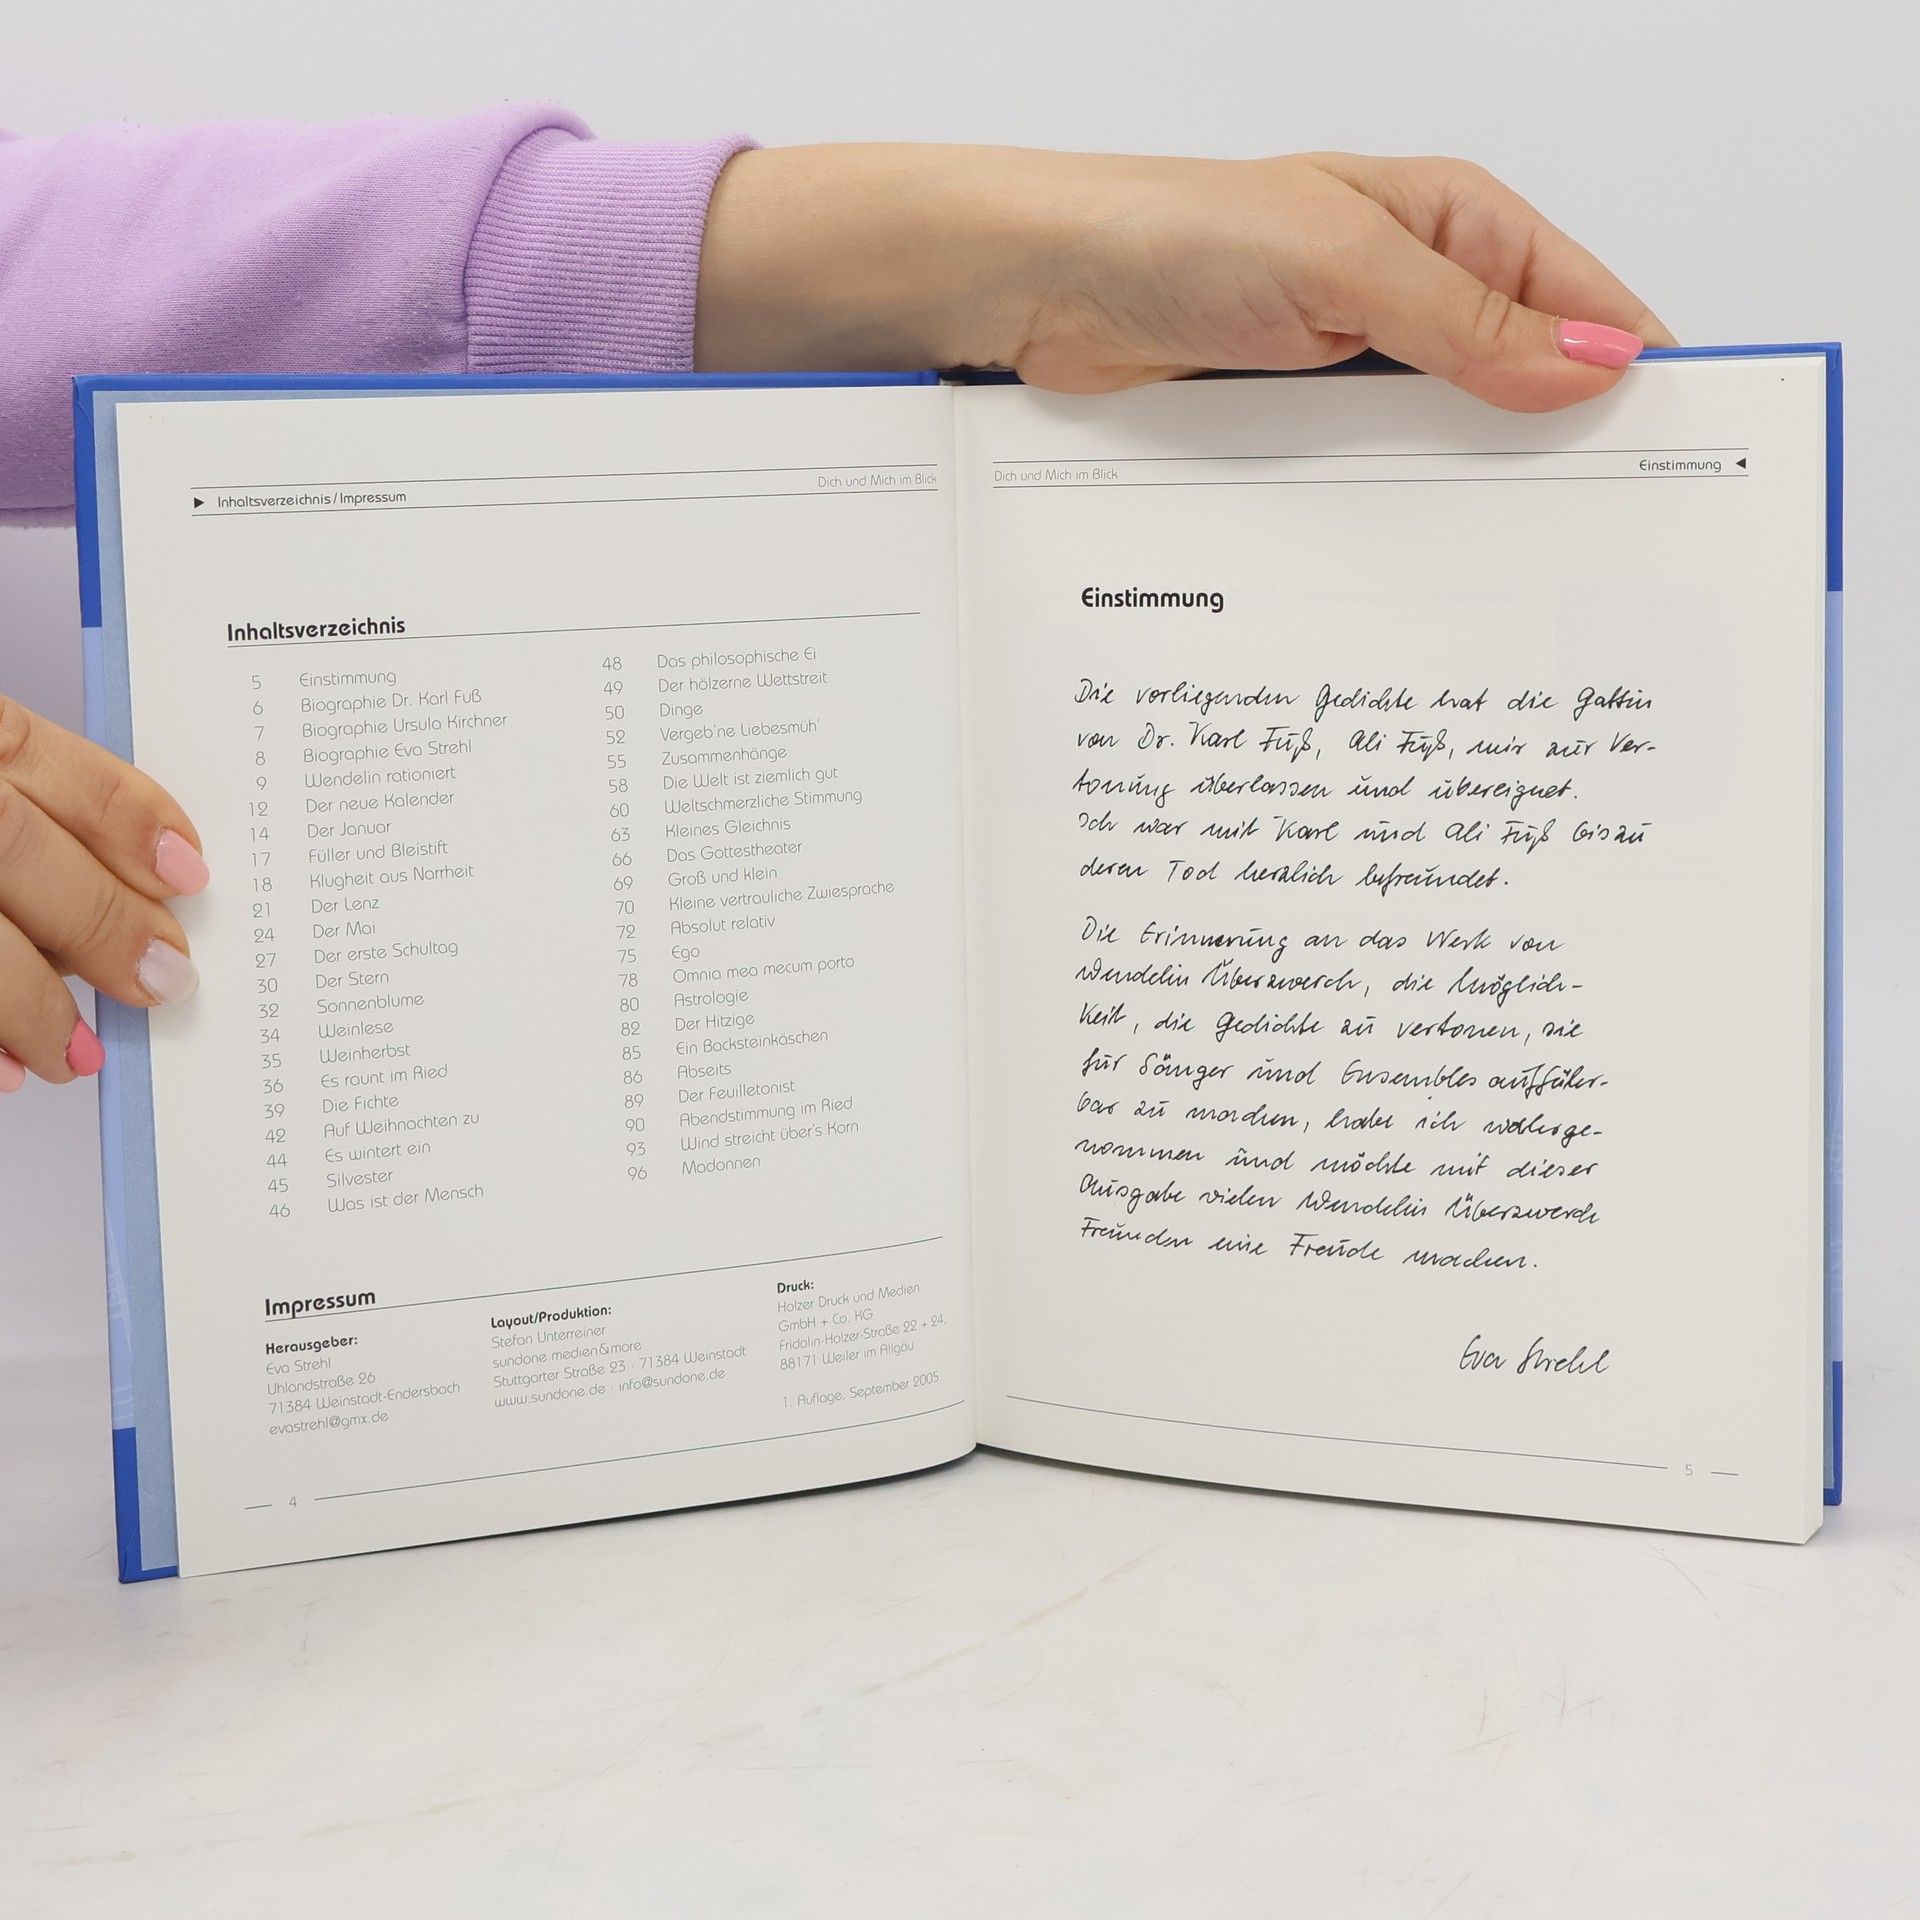 Dich und Mich im Blick
▶ Inhaltsverzeichnis / Impressum
Inhaltsverzeichnis
5 Einstimmung
6 Biographie Dr. Karl Fuß
7 Biographie Ursula Kirchner
8 Biographie Eva Strehl
9 Wendelin rationiert
12 Der neue Kalender
14 Der Januar
17 Füller und Bleistift
18 Klugheit aus Narrheit
21 Der Lenz
24 Der Mai
27 Der erste Schultag
30 Der Stern
32 Sonnenblume
34 Weinlese
35 Weinherbst
36 Es raunt im Ried
39 Die Fichte
42 Auf Weihnachten zu
44 Es wintert ein
45 Silvester
46 Was ist der Mensch
48 Das philosophische Ei
49 Der hölzerne Wettstreit
50 Dinge
52 Vergeb'ne Liebesmüh'
55 Zusammenhänge
58 Die Welt ist ziemlich gut
60 Weltschmerzliche Stimmung
63 Kleines Gleichnis
66 Das Gottestheater
69 Groß und klein
70 Kleine vertrauliche Zwiesprache
72 Absolut relativ
75 Ego
78 Omnia mea mecum porto
80 Astrologie
82 Der Hitzige
85 Ein Backsteinkäschen
86 Abseits
89 Der Feuilletonist
90 Abendstimmung im Ried
93 Wind streicht über's Korn
96 Madonnen
Impressum
Herausgeber:
Eva Strehl
Uhlandstraße 26
71384 Weinstadt-Endersbach
evastrehl@gmx.de
Layout/Produktion:
Stefan Unterreiner
sundone medien&more
Stuttgarter Straße 23 · 71384 Weinstadt
www.sundone.de · info@sundone.de
Druck:
Holzer Druck und Medien
GmbH + Co. KG
Fridolin-Holzer-Straße 22 + 24,
88171 Weiler im Allgäu
1. Auflage, September 2005
4
Dich und Mich im Blick
Einstimmung ◀
Einstimmung
Die vorliegenden Gedichte hat die Gattin
von Dr. Karl Fuß, Ali Fuß, mir zur Ver-
tonung überlassen und übereignet.
Ich war mit Karl und Ali Fuß bis zu
deren Tod herzlich befreundet.
Die Erinnerung an das Werk von
Wendelin Überzwerch, die Möglich-
keit, die Gedichte zu vertonen, sie
für Sänger und Ensembles aufführ-
bar zu machen, habe ich wahrge-
nommen und möchte mit dieser
Ausgabe vielen Wendelin Überzwerch
Freunden eine Freude machen.
Eva Strehl
5